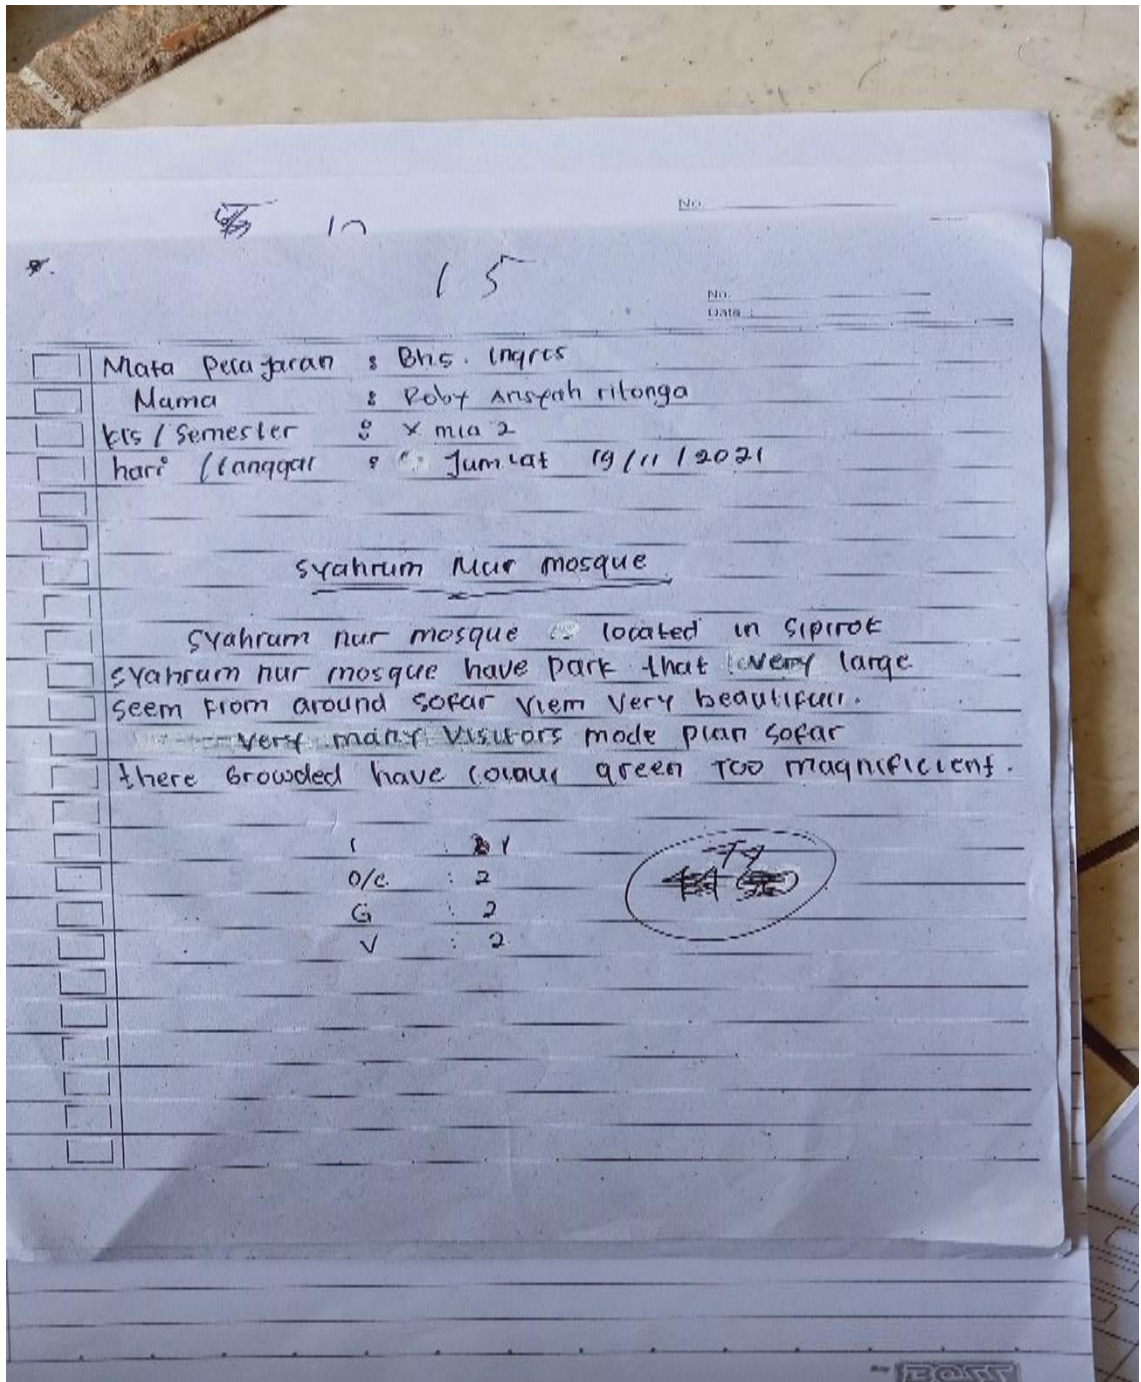 10
No.
15
No.
Date :
Mata Pelajaran : Bhs. Ingris
Nama : Roby Ansyah ritonga
kls / Semester : X mia 2
hari / tanggal : Jum'at 19/11/2021
Syahrum Nur mosque
Syahrum nur mosque is located in Sipirok
syahrum nur mosque have park that very large
seem from around sofar view very beautifull.
very many visitors made plan sofar
there Growded have colour green Too magnificient.
1 : 1
O/C. : 2
G : 2
V : 2
BOSS